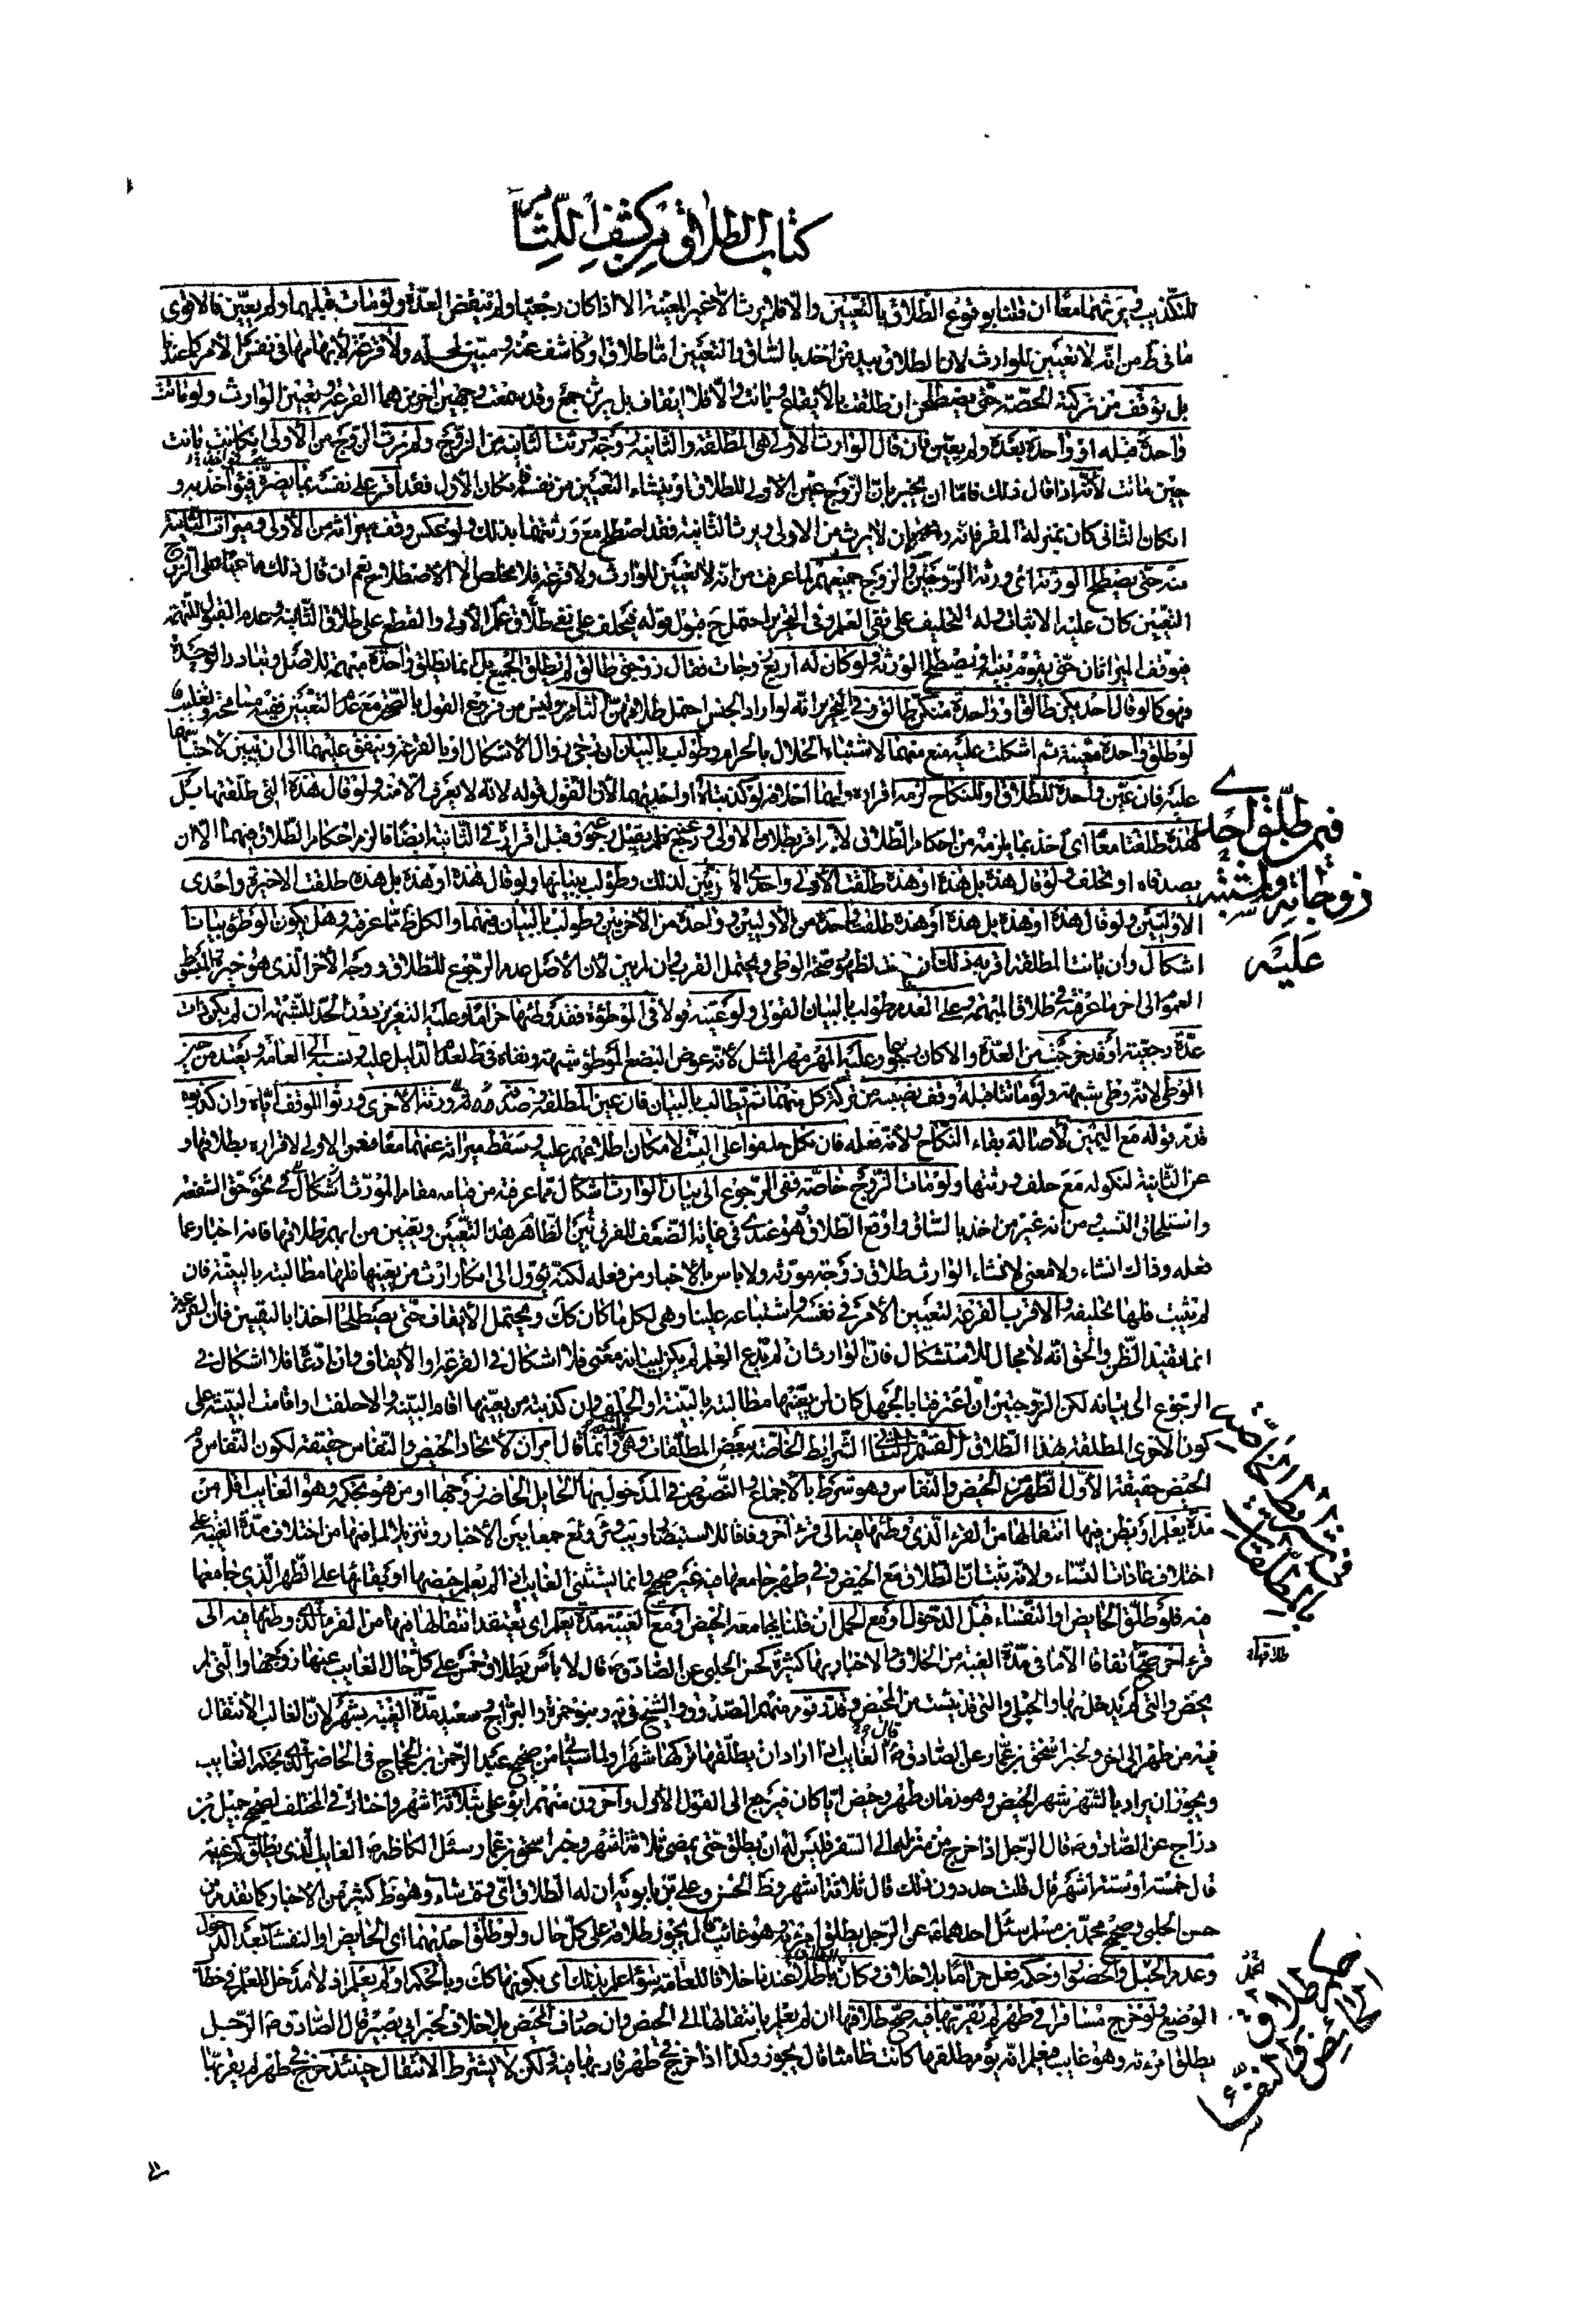 كتاب الطلاق من كشف اللثام
للتكذيب ويرثهما معا ان قلنا بوقوع الطلاق بالتعيين والا فلا يرث الا غير المعينة الا اذا كان رجعيا ولم تنقض العدة ولو مات قبلهما ولم يعين فالاقوى
ما في ط من انه لا تعيين للوارث لان الطلاق بيد من اخذ بالساق والتعيين اما طلاق او كاشف عنه ومبين لمحله ولا قرعة لابهامها في نفس الامر كما عندنا
بل توقف من تركته الحصة حتى يصطلحن ان طلقت بالايقاع وبانت والا فلا ايقاف بل يرثن جمع وقد سمعت وجهين اخرين هما القرعة وتعيين الوارث ولو ماتت
واحدة قبله او واحدة بعده ولم يعين فان قال الوارث الاولى هي المطلقة والثانية زوجة ورثت الثانية من الزوج ولم يرث الزوج من الاولى ان كانت بانت
حين ماتت لانه اذا قال ذلك فاما ان يخبر بان الزوج عين الاولى للطلاق او ينشاء التعيين من نفسه فان كان الاول فقد اقر على نفسه بما يضره فيؤاخذ به و
ان كان الثاني كان بمنزلة المقر فانه ان لا يرث من الاولى ويرث الثانية فقد اصطلح مع ورثتهما بذلك ولو عكس وقف ميراثه من الاولى وميراث الثانية
منه حتى يصطلح الورثة اي ورثة الزوجتين والزوج جميعهم لما عرفت من انه لا تعيين للوارث ولا قرعة فلا مخلص الا الاصطلاح نعم ان قال ذلك على الزوج
التعيين كان عليه الاثبات وله التحليف على نفي العلم وفي التحرير احتمل ح قبول قوله فيحلف على نفي طلاق الاولى والقطع على طلاق الثانية وعدم القبول للتهمة
فيوقف الميراثان حتى يقوم بينة او يصطلح الورثة ولو كان له اربع زوجات فقال زوجتي طالق لم يطلق الجميع بل انما يطلق واحدة مبهمة للاصل وتبادر الوحدة
فهو كما لو قال احديكن طالق او واحدة منكن طالق وفي التحرير انه لو اراد الجنس احتمل طلاقهن
لو طلق واحدة معينة ثم اشكلت عليه منع منهما لاشتباه الحلال بالحرام وطولب بالبيان ان رجى زوال الاشكال او بالقرعة وينفق عليهما الى ان يتبين لاحتباسهما
عليه فان عين واحدة للطلاق او للنكاح لزمه اقراره ولهما احلافه لو كذبتاه او احديهما الا ان القول قوله لانه لا يعرف الا منه ولو قال هذه التي طلقتها بل
هذه طلقتا معا اي اخذ بما يلزمه من احكام الطلاق لانه اقر بطلاق الاولى ورجع عنه فلم يقبل رجوعه وقبل اقراره في الثانية ايضا فالزم احكام الطلاق فيهما الا ان
يصدقاه او يحلف ولو قال هذه بل هذه او هذه طلقت الاولى واحدى الاخريين لذلك وطولب ببيانها ولو قال هذه او هذه بل هذه طلقت الاخيرة واحدى
الاوليين ولو قال هذه او هذه بل هذه او هذه طلقت واحدة من الاوليين وواحدة من الاخريين وطولب بالبيان فيهما والكل ظ مما عرفت وهل يكون الوطؤ بيانا
فيمن طلق واحدة
زوجاته واشتبه
عليه
العموالى اخر ما عرفته في طلاق المبهمة وعلى العدم طولب بالبيان القولي ولو عينه قولا في الموطؤة فقد وطئها حراما وعليه التعزير دون الحد للشبهة ان لم يكن ذات
عدة رجعية او قد خرجت من العدة والا كان رجوعا وعليه المهر مهر المثل لانه عوض البضع الموطؤ شبهة ونفاه في ط لعدم الدليل عليه ونسبه الى العامة ويعتد من حين
الوطي لانه وطي شبهة ولو ماتتا قبله وقف نصيبه من تركة كل منهما ثم يطالب بالبيان فان عين المطلقة وصدقه ورثة الاخرى ورثوا الموقف اياه وان كذبوه
قدم قوله مع اليمين لاصالة بقاء النكاح ولانه فعله فان نكل حلفوا على البت لامكان اطلاعهم عليه وسقط ميراثه عنهما معا فعن الاولى لاقراره بطلاقها و
عن الثانية لنكوله مع حلف ورثتها ولو مات الزوج خاصة ففي الرجوع الى بيان الوارث اشكال مما عرفت من قيامه مقام المورث اشكال في نحو حق الشفعة
واستلحاق النسب ومن انه غير من اخذ بالساق واوقع الطلاق وهو عندي في غاية الضعف للفرق بين الظاهر هذا التعيين وتعيين من ابهم طلاقها فانه اخبار عما
فعله وذاك انشاء ولا معنى لانشاء الوارث طلاق زوجة مورثه ولا باس بالاخبار من فعله لكنه يؤول الى انكار ارث من يعينها فلها مطالبته بالبينة فان
لم تثبت فلها تحليفه والاقرب القرعة لتعيين الامر في نفسه واشتباهه علينا وهي لكل ما كان كك ويحتمل الايقاف حتى يصطلحا اخذا باليقين فان القرعة
انما تفيد الظن والحق انه لا مجال للاستشكال فان الوارث ان لم يدع العلم لم يكن لبيانه معنى فلا اشكال في القرعة او الايقاف وان ادعا فلا اشكال في
الرجوع الى بيانه لكن الزوجتين ان اعترفتا بالجهل كان لمن يعينها مطالبته بالبينة او الحلف وان كذبته من يعينها اقام البينة والا حلفت او اقامت البينة على
كون الاخرى المطلقة بهذا الطلاق القسم الثاني الشرايط الخاصة ببعض المطلقات وهي وانما قال امران لاتحاد الحيض والنفاس حقيقة لكون النفاس دم
الحيض حقيقة الاول الطهر من الحيض والنفاس وهو شرط بالاجماع والنصوص في المدخول بها الحائل الحاضر زوجها او من هو بحكمه وهو الغايب اقل من
مدة يعلم او يظن فيها انتقالها من القرء الذي وطئها فيه الى قرء اخر وفاقا للاستبصار ويب وئر وئع جمعا بين الاخبار وتنزيلا لما فيها من اختلاف مدة الغيبة على
اختلاف عادات النساء ولانه ثبت ان الطلاق مع الحيض وفي طهر جامعها فيه غير صحيح وانما استثنى الغايب اذا لم يعلم حيضها او بقائها على الطهر الذي جامعها
فيه فلو طلق الحايض او النفساء قبل الدخول او مع الحمل ان قلنا بمجامعة الحيض او مع الغيبة مدة يعلم اي يعتقد انتقالها فيها من القرء الذي وطئها فيه الى
قرء اخر صح اتفاقا الا ما في مدة الغيبة من الخلاف والاخبار بها كثيرة كحسن الحلبي عن الصادق ع قال لا باس بطلاق خمس على كل حال الغايب عنها زوجها والتي لم
تحض والتي لم يدخل بها والحبلى والتي قد يئست من المحيض وقدر قوم منهم الصدوق والشيخ في يه وبنو حمزة والبراج وسعيد مدة الغيبة بشهر لان الغالب الانتقال
فيه من طهر الى اخر ولخبر اسحق بن عمار عن الصادق ع قال الغايب اذا اراد ان يطلقها تركها شهرا ولما سياتي من صحيح عبد الرحمن بن الحجاج في الحاضر الذي بحكم الغايب
ويجوز ان يراد بالشهر شهر الحيض وهو زمان طهر وحيض ايا كان فيرجع الى القول الاول واخرون منهم ابو علي بثلاثة اشهر واختاره في المختلف لصحيح جميل بن
دراج عن الصادق ع قال الرجل اذا خرج من منزله الى السفر فليس له ان يطلق حتى يمضي ثلاثة اشهر وخبر اسحق بن عمار سئل الكاظم ع الغايب الذي يطلق كم غيبته
قال خمسة او ستة اشهر قال قلت حد دون ذلك قال ثلاثة اشهر وظ الحسن وعلي بن بابويه ان له الطلاق اي وقت شاء وهو ظ كثير من الاخبار كما تقدم من
حسن الحلبي وصحيح محمد بن مسلم سئل احدهما ع عن الرجل يطلق امرءته وهو غائب قال يجوز طلاقه على كل حال ولو طلق احديهما اي الحايض او النفساء بعد الدخول
وعدم الحبل والحضور او حكمه فعل حراما بلا خلاف وكان باطلا عندنا خلافا للعامة سواء علم بذلك اي بكونها كك وبالحكم او لم يعلم اذ لا مدخل للعلم في خطاب
الوضع ولو خرج مسافرا في طهر لم يقربها فيه صح طلاقها ان لم يعلم بانتقالها الى الحيض وان صادف الحيض بلا خلاف لخبر ابي بصير قال الصادق ع الرجل
يطلق امرءته وهو غايب فيعلم انه يوم طلقها كانت طامثا قال يجوز وكذا اذا خرج في طهر قاربها فيه لكن لا يشترط الانتقال حينئذ خرج في طهر لم يقربها